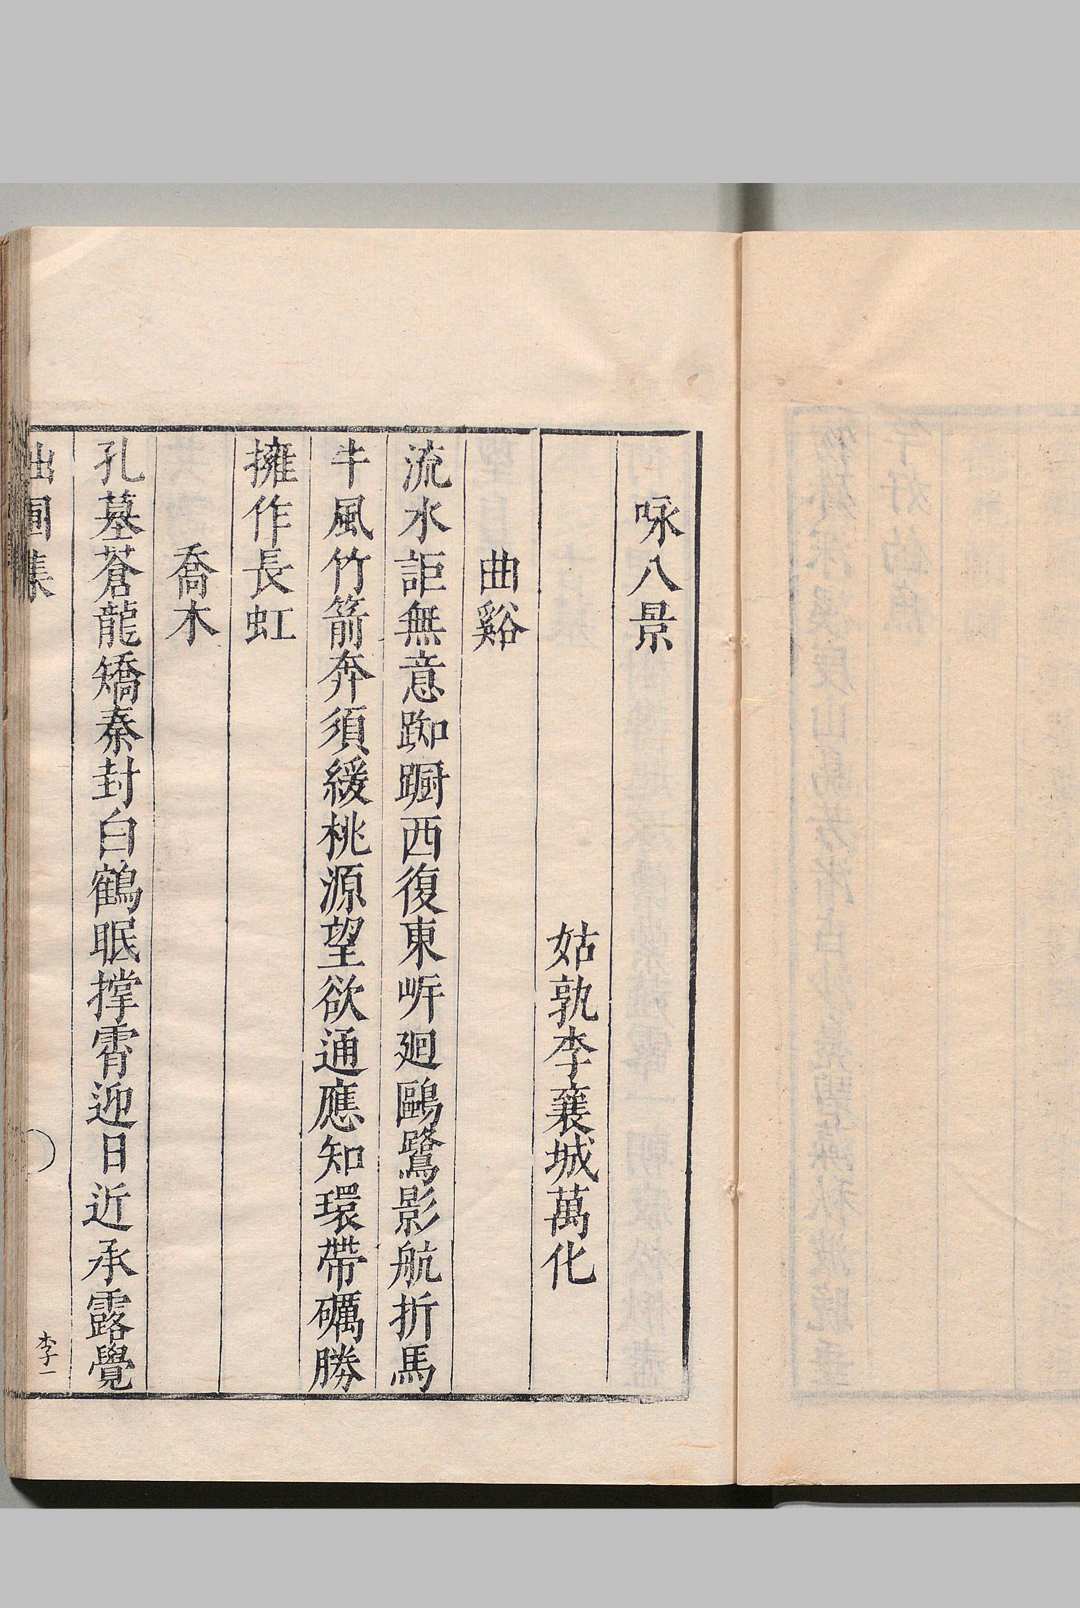 咏八景
姑孰李襄城萬化
曲谿
流水詎無意踟躕西復東㟁廻鷗鷺影航折馬
牛風竹箭奔須緩桃源望欲通應知環帶礪勝
擁作長虹
喬木
孔墓蒼龍矯秦封白鶴眠撑霄迎日近承露覺
園集
李一